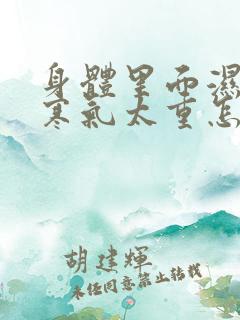 身體里面濕
寒氣太重怎
胡建輝
未经同意禁止转载